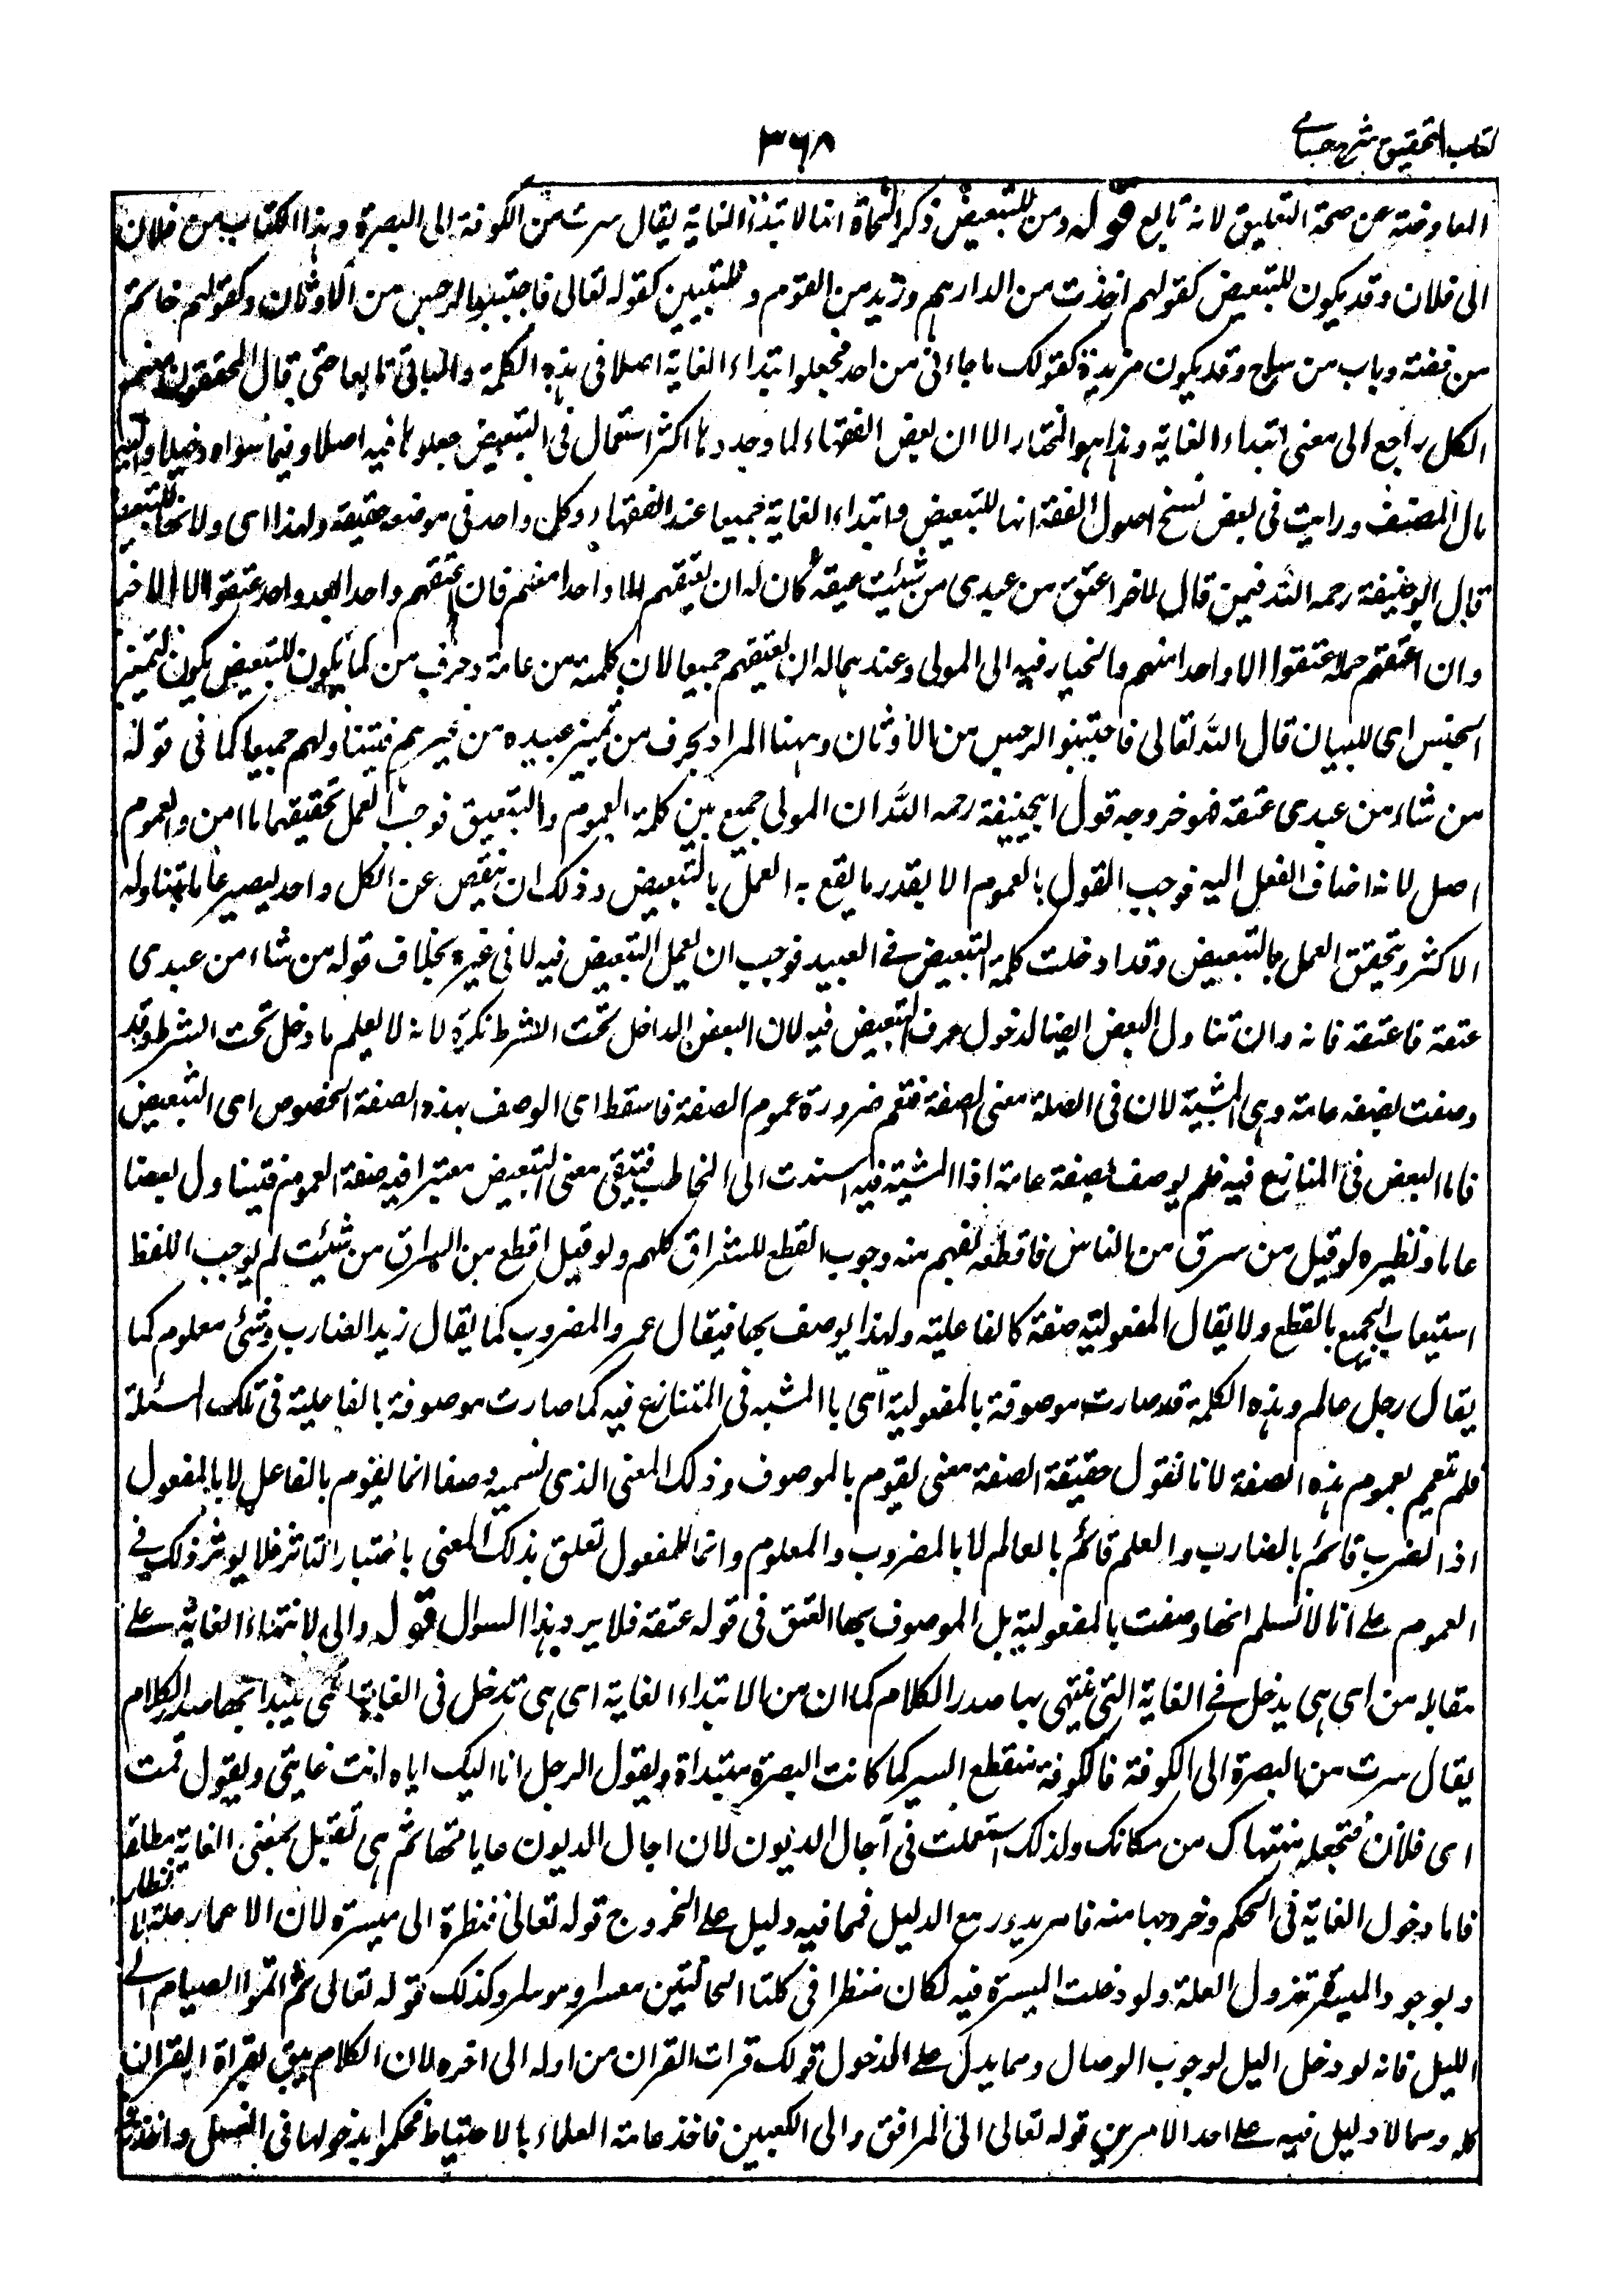 كتاب التحقيق شرح حسامى
٣٦٨
المعاوضة عن صحة التعليق لانه تابع قوله ومن للتبعيض ذكر النحاة انها لابتداء الغاية يقال سرت من الكوفة الى البصرة وهذا الكتاب من فلان
الى فلان وقد يكون للتبعيض كقولهم اخذت من الدراهم وزيد من القوم وللتبيين كقوله تعالى فاجتنبوا الرجس من الاوثان وكقولهم خاتم
من فضة وباب من ساج وقد يكون مزيدة كقولك ما جاءنى من احد فجعلوا ابتداء الغاية اصلا فى هذه الكلمة والباقى تابعا حتى قال المحققون منهم
الكل راجع الى معنى ابتداء الغاية وهذا هو المختار الا ان بعض الفقهاء لما وجدوها اكثر استعمالا فى التبعيض جعلوها فيه اصلا وفيما سواه دخيلا واليه
مال المصنف ورايت فى بعض نسخ اصول الفقه انها للتبعيض وابتداء الغاية جميعا عند الفقهاء وكل واحد فى موضعه حقيقة ولهذا اى ولانها للتبعيض
قال ابو حنيفة رحمه الله فيمن قال لاخر اعتق من عبيدى من شئت عتقه كان له ان يعتقهم الا واحدا منهم فان اعتقهم واحدا بعد واحد عتقوا الا الاخير
وان اعتقهم جملة عتقوا الا واحدا منهم والخيار فيه الى المولى وعندهما له ان يعتقهم جميعا لان كلمة من عامة وحرف من كما يكون للتبعيض يكون لتمييز
الجنس اى للبيان قال الله تعالى فاجتنبوا الرجس من الاوثان وههنا المراد بحرف من تمييز عبيده من غيرهم فيتناولهم جميعا كما فى قوله
من شاء من عبيدى عتقه فهو حر وجه قول ابيحنيفة رحمه الله ان المولى جمع بين كلمة العموم والتبعيض فوجب العمل بحقيقتهما ما امكن والعموم
اصل لانه اضاف الفعل اليه فوجب القول بالعموم الا بقدر ما يقع به العمل بالتبعيض وذلك ان ينقص عن الكل واحد ليصير عاما بتناوله
الاكثر ويتحقق العمل بالتبعيض وقد ادخلت كلمة التبعيض فى العبيد فوجب ان يعمل التبعيض فيه لا فى غيره بخلاف قوله من شاء من عبيدى
عتقه فاعتقه فانه وان تناول البعض ايضا لدخول حرف التبعيض فيه لان البعض الداخل تحت الشرط نكرة لانه لا يعلم ما دخل تحت الشرط وقد
وصفت بصفة عامة وهى المشية لان فى الصلة معنى الصفة فتعم ضرورة عموم الصفة فاسقط اى الوصف بهذه الصفة الخصوص اى التبعيض
فاما البعض فى المتنازع فيه فلم يوصف بصفة عامة اذا المشية فيه اسندت الى المخاطب فتبقى معنى التبعيض معتبرا فيه صفة العموم فيتناول بعضا
عاما ونظيره لو قيل من سرق من الناس فاقطعه يفهم منه وجوب القطع للسراق كلهم ولو قيل اقطع من السراق من شئت لم يوجب اللفظ
استيعاب الجميع بالقطع ولا يقال المفعولية صفة كالفاعلية ولهذا يوصف بها فيقال عمرو المضروب كما يقال زيد الضارب وشئ معلوم كما
يقال رجل عالم وهذه الكلمة قد صارت موصوفة بالمفعولية اى بالمشية فى المتنازع فيه كما صارت موصوفة بالفاعلية فى تلك المسئلة
فلم تعمم بعموم هذه الصفة لانا نقول حقيقة الصفة معنى يقوم بالموصوف وذلك المعنى الذى نسميه وصفا انما يقوم بالفاعل لا بالمفعول
اذ الضرب قائم بالضارب والعلم قائم بالعالم لا بالمضروب والمعلوم وانما للمفعول تعلق بذلك المعنى باعتبار التاثر فلا يوثر ذلك فى
العموم على انا لا نسلم انها وصفت بالمفعولية بل الموصوف بها العتق فى قوله عتقه فلا يرد هذا السوال قوله والى لانتهاء الغاية على
مقابلة من اى هى يدخل فى الغاية التى ينتهى بها صدر الكلام كما ان من لابتداء الغاية اى هى تدخل فى الغاية التى يبتدأ بها صدر الكلام
يقال سرت من البصرة الى الكوفة فالكوفة منقطع السير كما كانت البصرة مبتداة ويقول الرجل انا اليك اياه انت غايتى ويقول قمت
اى فلان فتجعله منتهاك من مكانك ولذلك استعملت فى آجال الديون لان اجال الديون غاياتها ثم هى تقبل بمعنى الغاية مطلقا
فاما دخول الغاية فى الحكم وخروجها منه فامر يدور مع الدليل فمما فيه دليل على الخروج قوله تعالى فنظرة الى ميسرة لان الاعسار علة الانظار
وبوجود الميسرة تزول العلة ولو دخلت الميسرة فيه لكان منظرا فى كلتا الحالتين معسرا وموسرا وكذلك قوله تعالى ثم اتموا الصيام الى
الليل فانه لو دخل اليل لوجب الوصال ومما يدل على الدخول قولك قرات القران من اوله الى اخره لان الكلام سيق لقراة القران
كله ومما لا دليل فيه على احد الامرين قوله تعالى الى المرافق والى الكعبين فاخذ عامة العلماء بالاحتياط فحكموا بدخولها فى الغسل واخذ